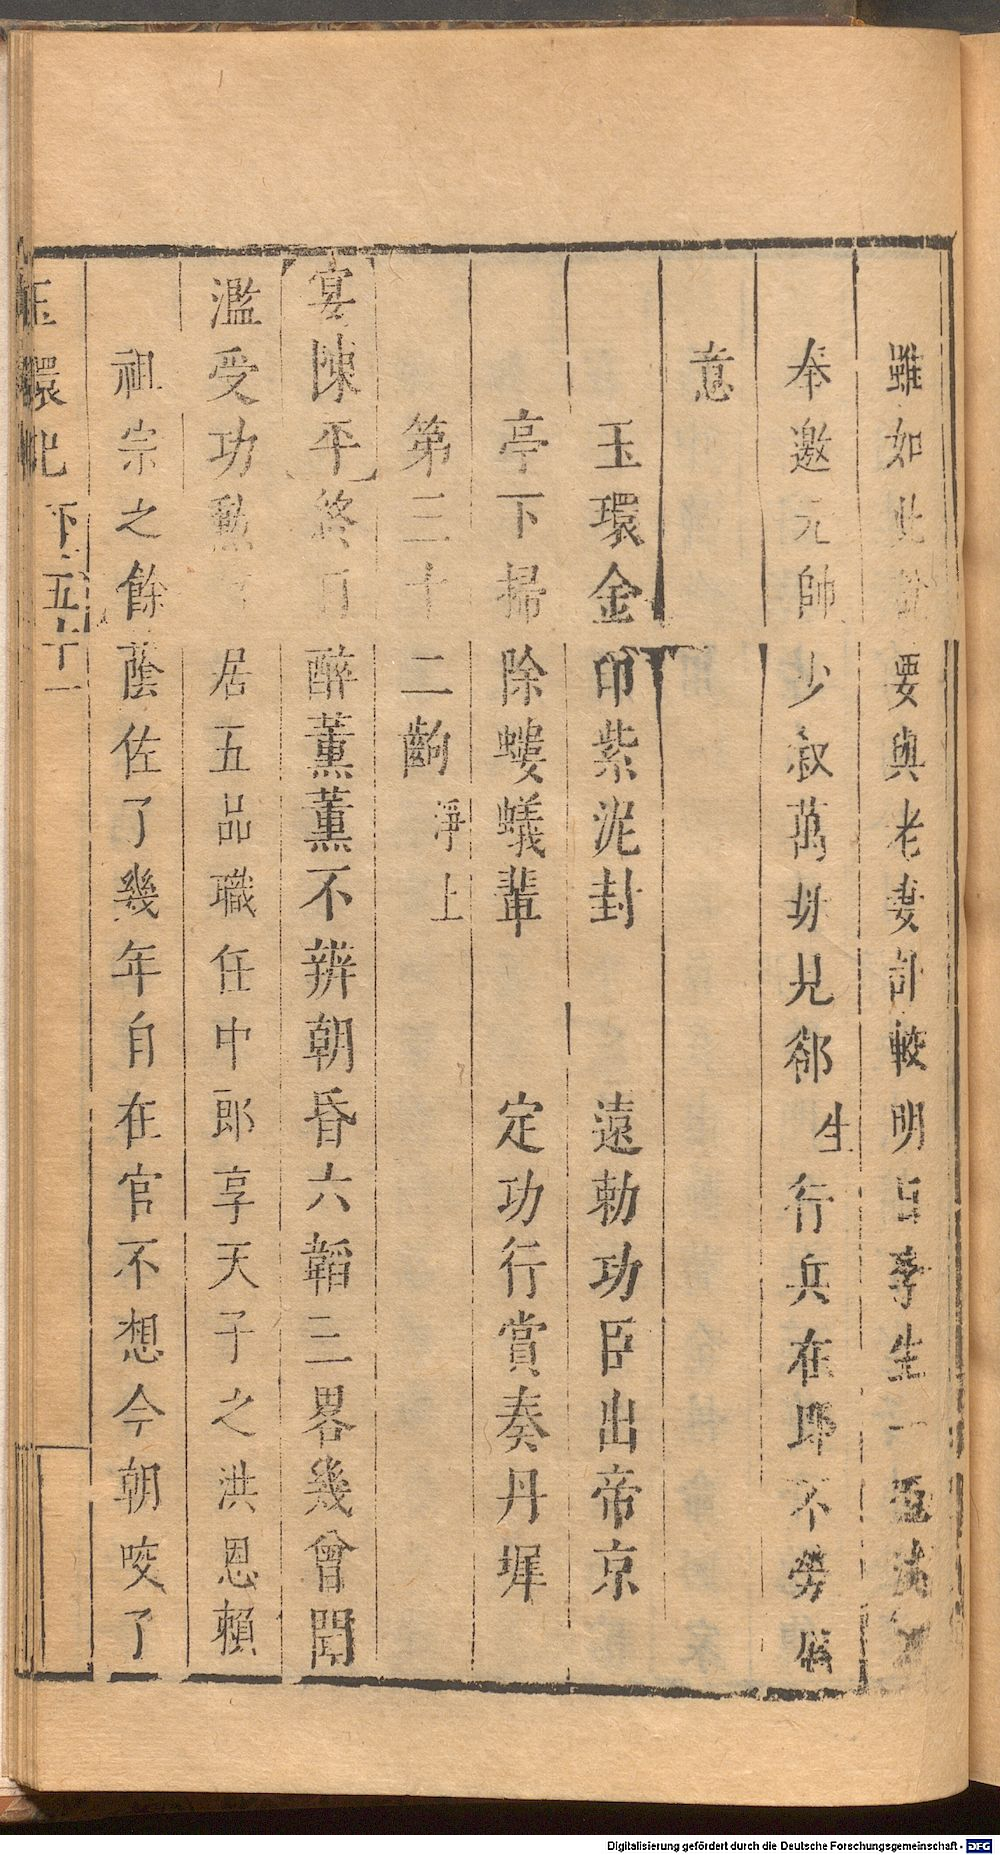 雖如此說要與老妻計較明日李生一
奉邀元帥少叙萬勿見郤生行兵在邱不勞
意
玉環金印紫泥封　遠勅功臣出帝京
亭下掃除螻蟻輩　定功行賞奏丹墀
第三十二齣淨上
宴陳平終日醉薰薰不辨朝昏六韜三畧幾曾聞
濫受功勲居五品職任中郎享天子之洪恩賴
祖宗之餘蔭佐了幾年自在官不想今朝咬了
玉環記下五十一
Digitalisierung gefördert durch die Deutsche Forschungsgemeinschaft - DFG